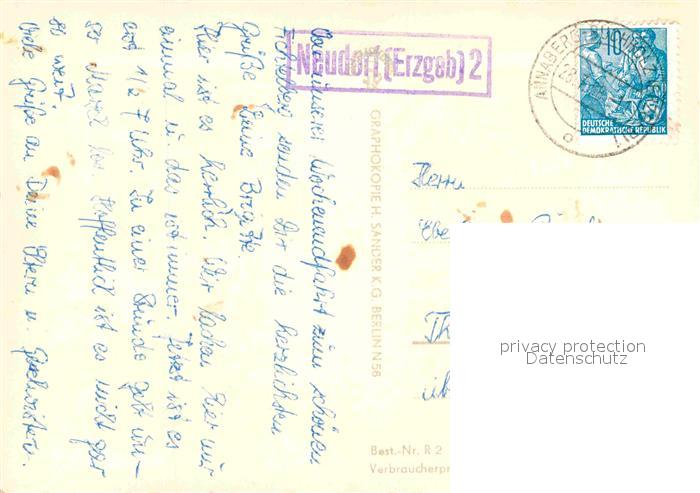 Von unserer Wochenendfahrt zum schönen
Fichtelberg senden Dir die herzlichsten
Grüße Deine Brigitte.
Hier ist es herrlich. Wir lachen hier nur
einmal u. das ist immer. Jetzt ist es
erst 1/2 7 Uhr. Zu einer Stunde geht un-
ser los. Hoffentlich ist es nicht gar
so weit.
Viele Grüße an Deine Eltern u. Geschwister.
Neudorf (Erzgeb) 2
ANNABERG-BUCHHOLZ
10
DEUTSCHE
DEMOKRATISCHE REPUBLIK
GRAPHOKOPIE H. SANDER K.G. BERLIN N 58
Herrn
Th
üb
privacy protection
Datenschutz
Best.-Nr. R 2
Verbraucherpr